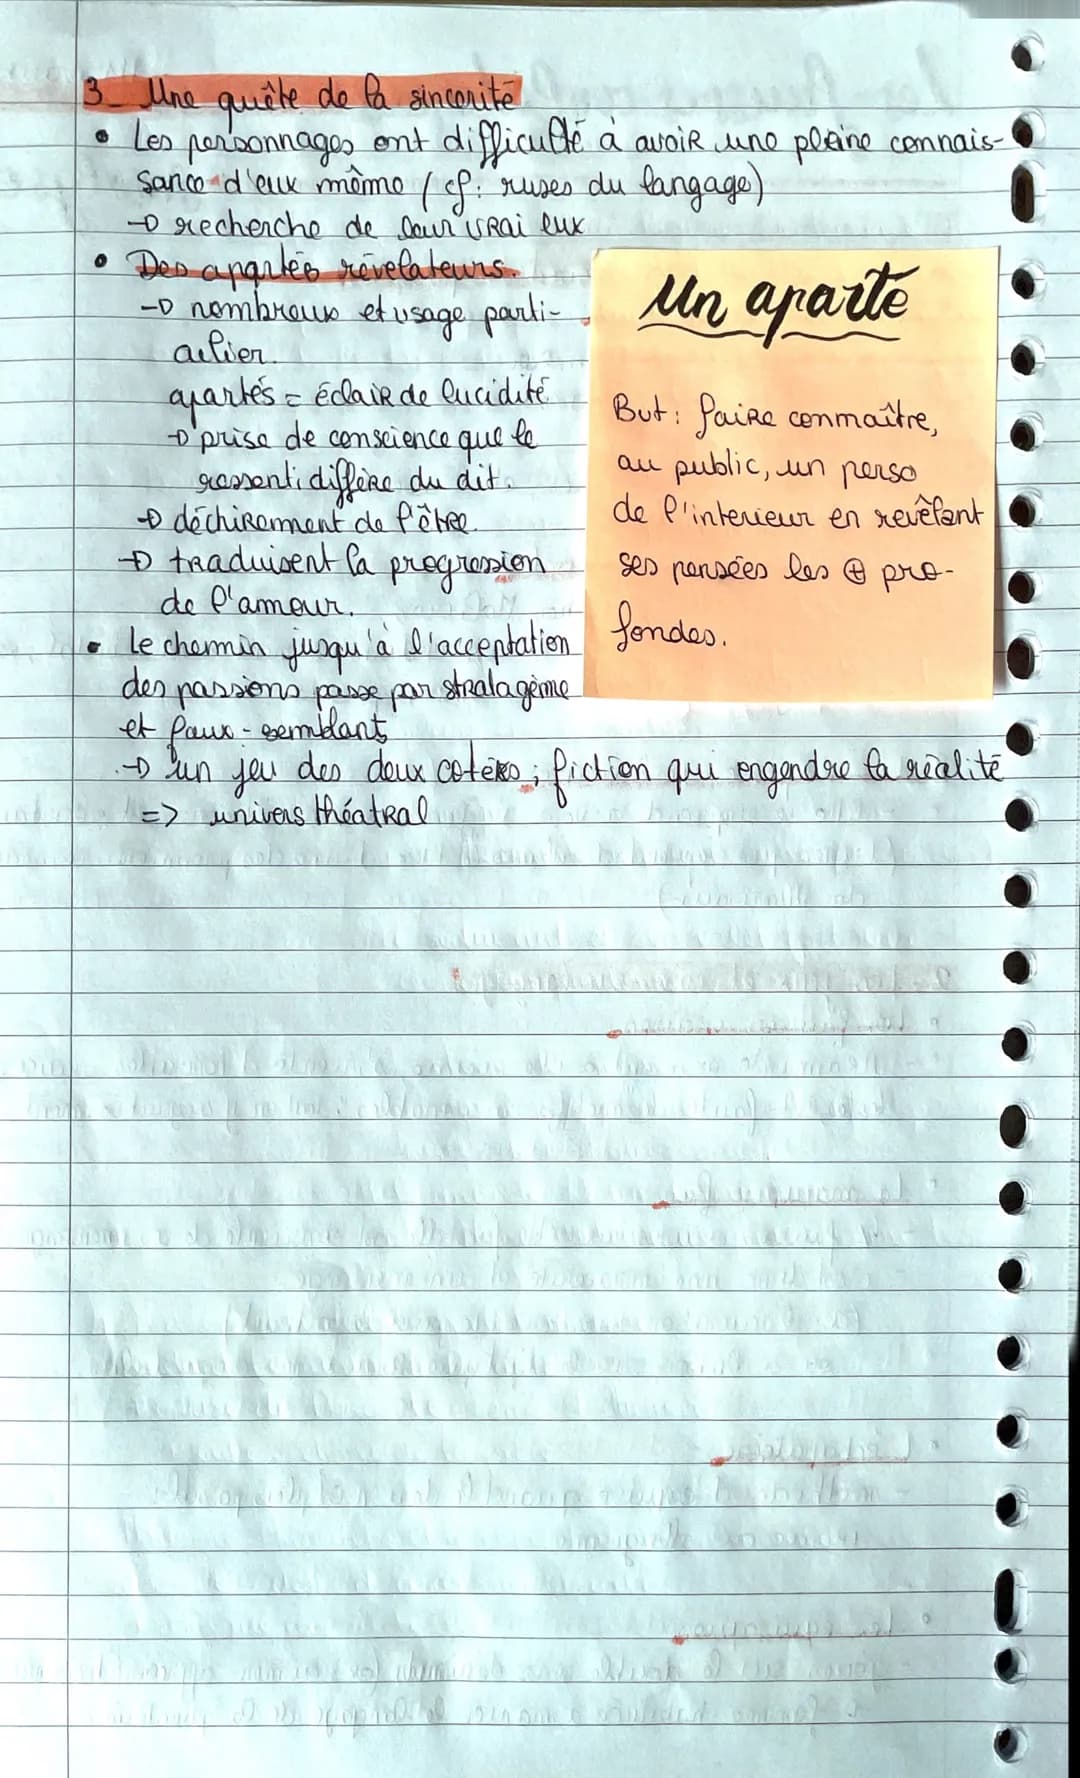 3_ Une quête de la sincerité
• Les personnages ont difficulté à avoir une pleine connais-
sance d'eux même (cf: ruses du langage)
→ recherche de leur vrai eux
• Des apartés révelateurs.
→ nombreux et usage parti-
culier.
apartés = éclair de lucidité
→ prise de conscience que le
ressenti differe du dit.
→ déchirement de l'être.
→ traduisent la progression
de l'amour.
• le chemin jusqu'à l'acceptation
des passions passe par stratagème
et faux-semblant
→ un jeu des deux cotés ; fiction qui engendre la réalité
=> univers théatral
Un aparté
But : faire connaître,
au public, un perso
de l'interieur en revêlant
ses pensées les ⊕ pro-
fondes.